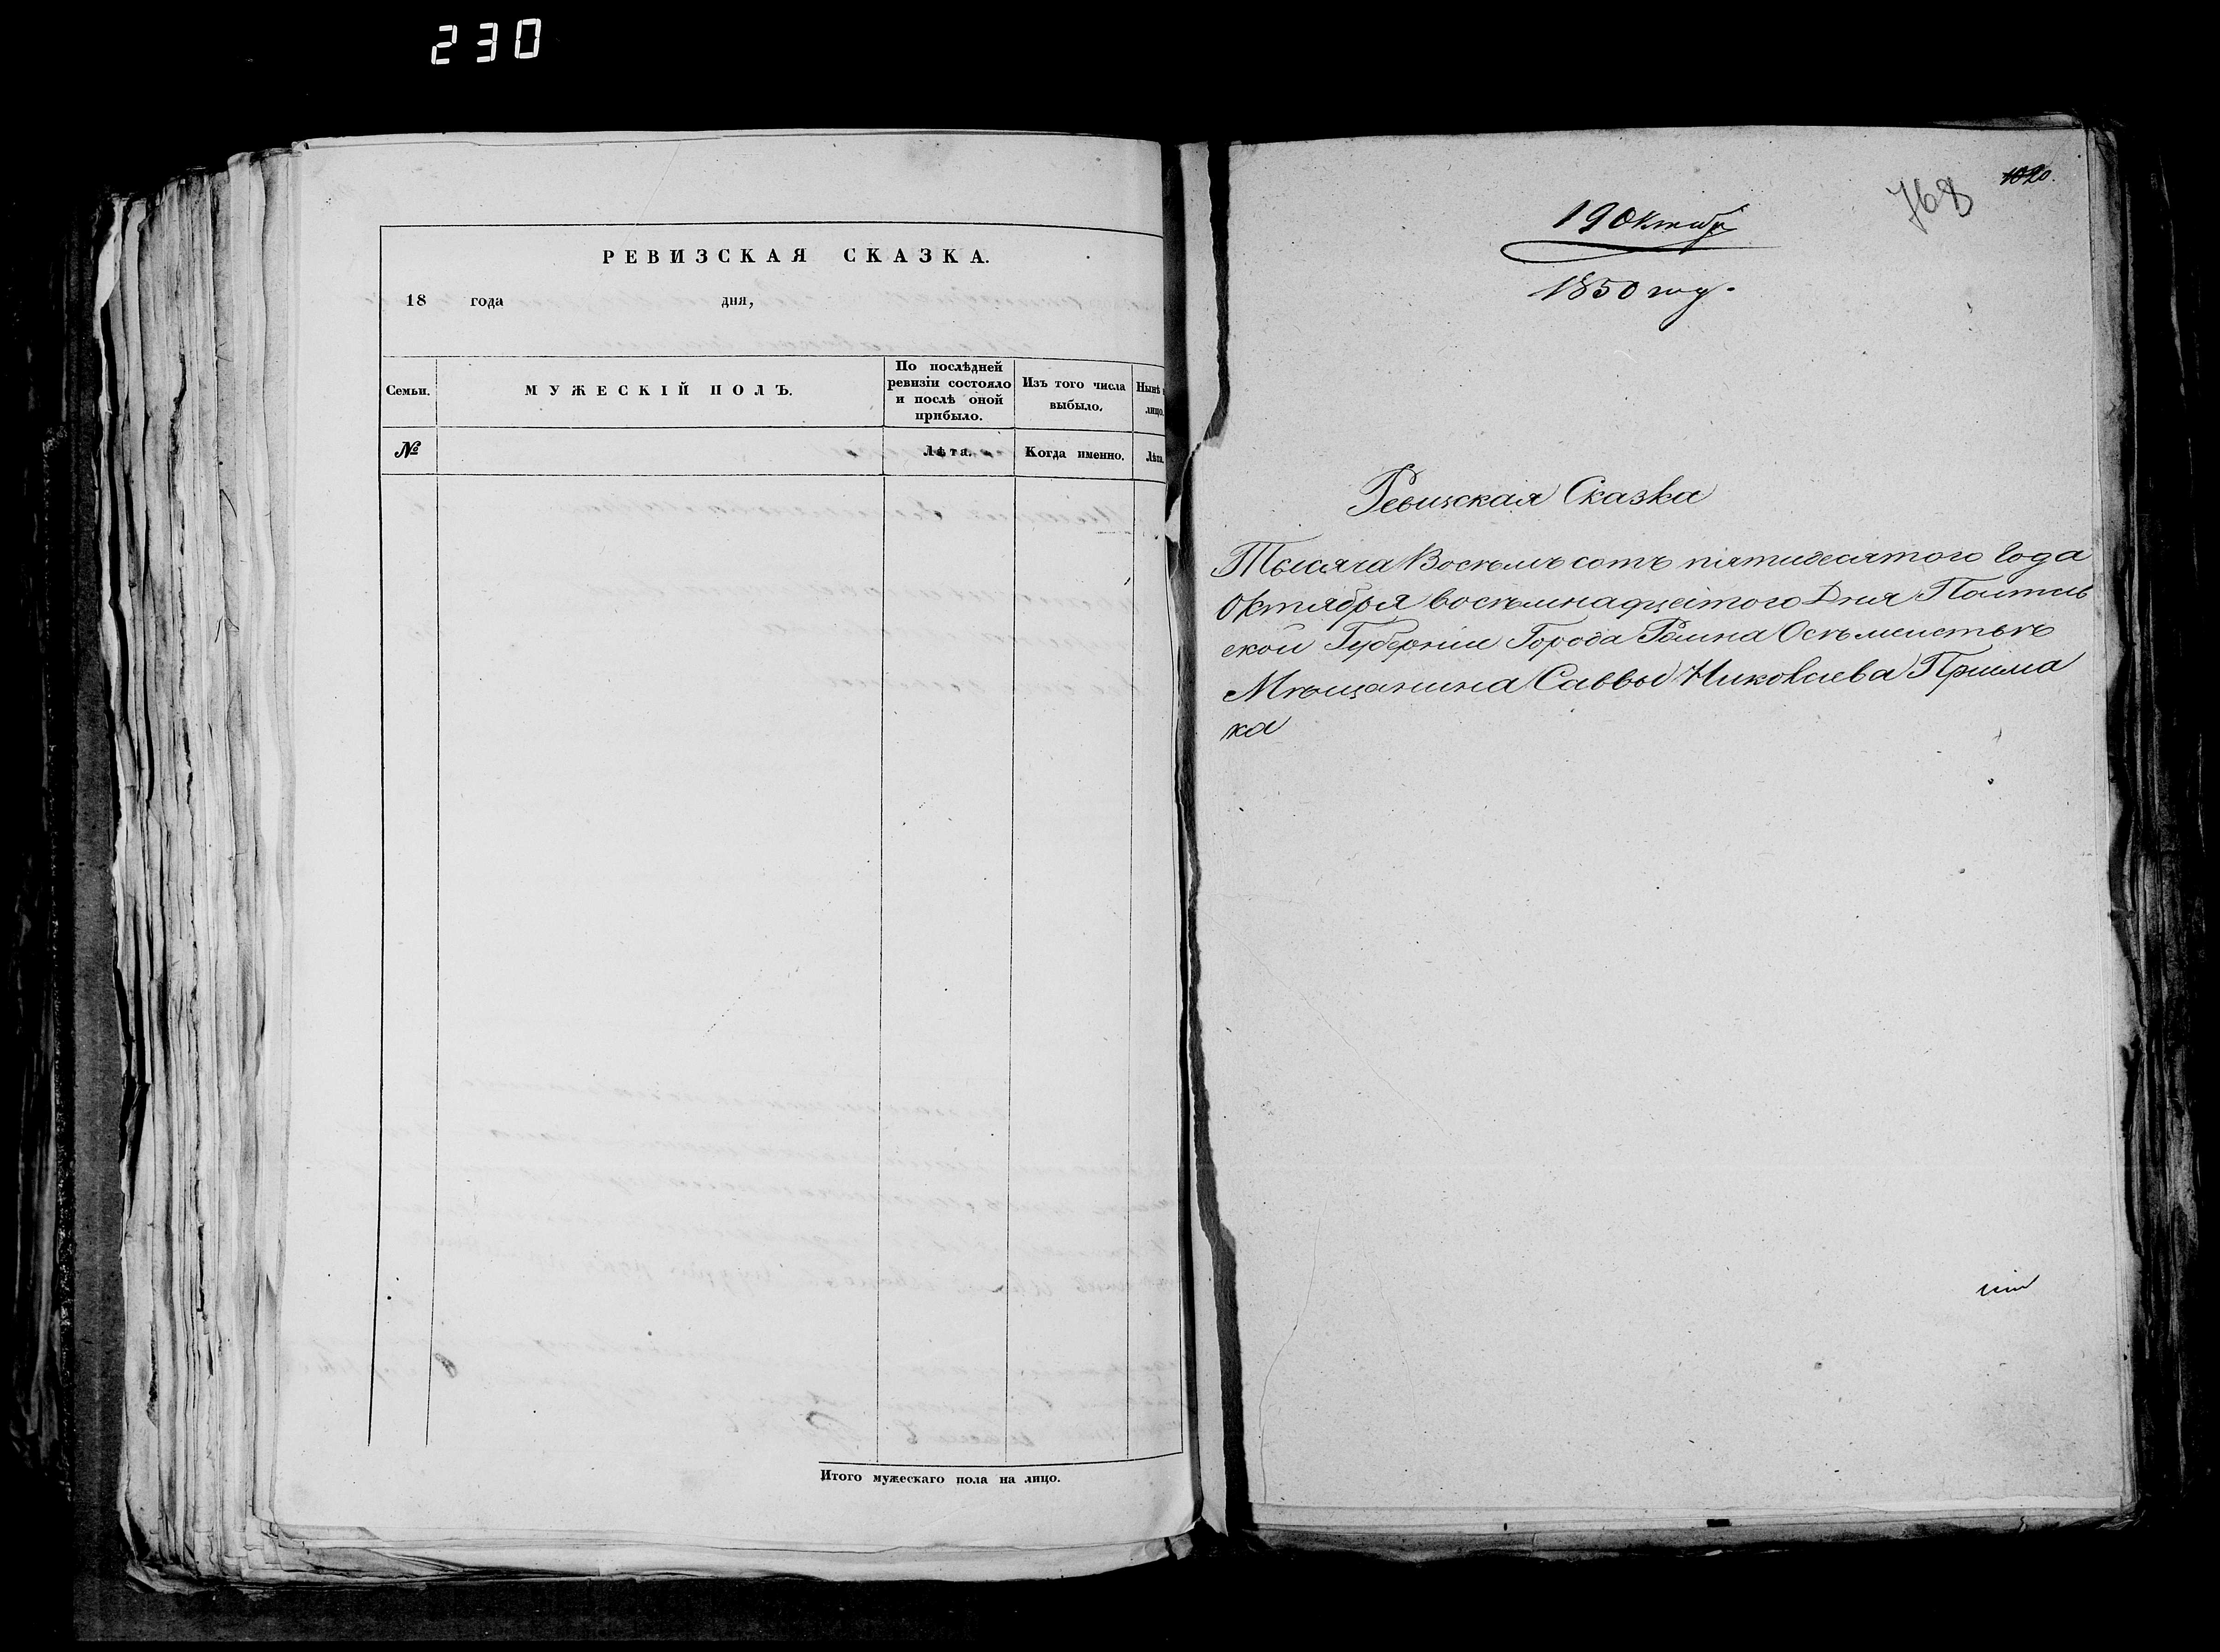 230
РЕВИЗСКАЯ СКАЗКА.
18 года дня,
Семьи.
МУЖЕСКІЙ ПОЛЪ.
По послѣдней
ревизіи состояло
и послѣ оной
прибыло.
Изъ того числа
выбыло.
Нынѣ
лицо.
№
Лѣта.
Когда именно.
Лѣта
Итого мужескаго пола на лицо.
768
1020.
19 Октябр
1850 году.
Ревизская Сказка
Тысяча Восемь сотъ пятидесятого Года
Октября восемнадцятого Дня Полтав
ской Губерніи Города
Мѣщанина Саввы Николаева Прийма
ка